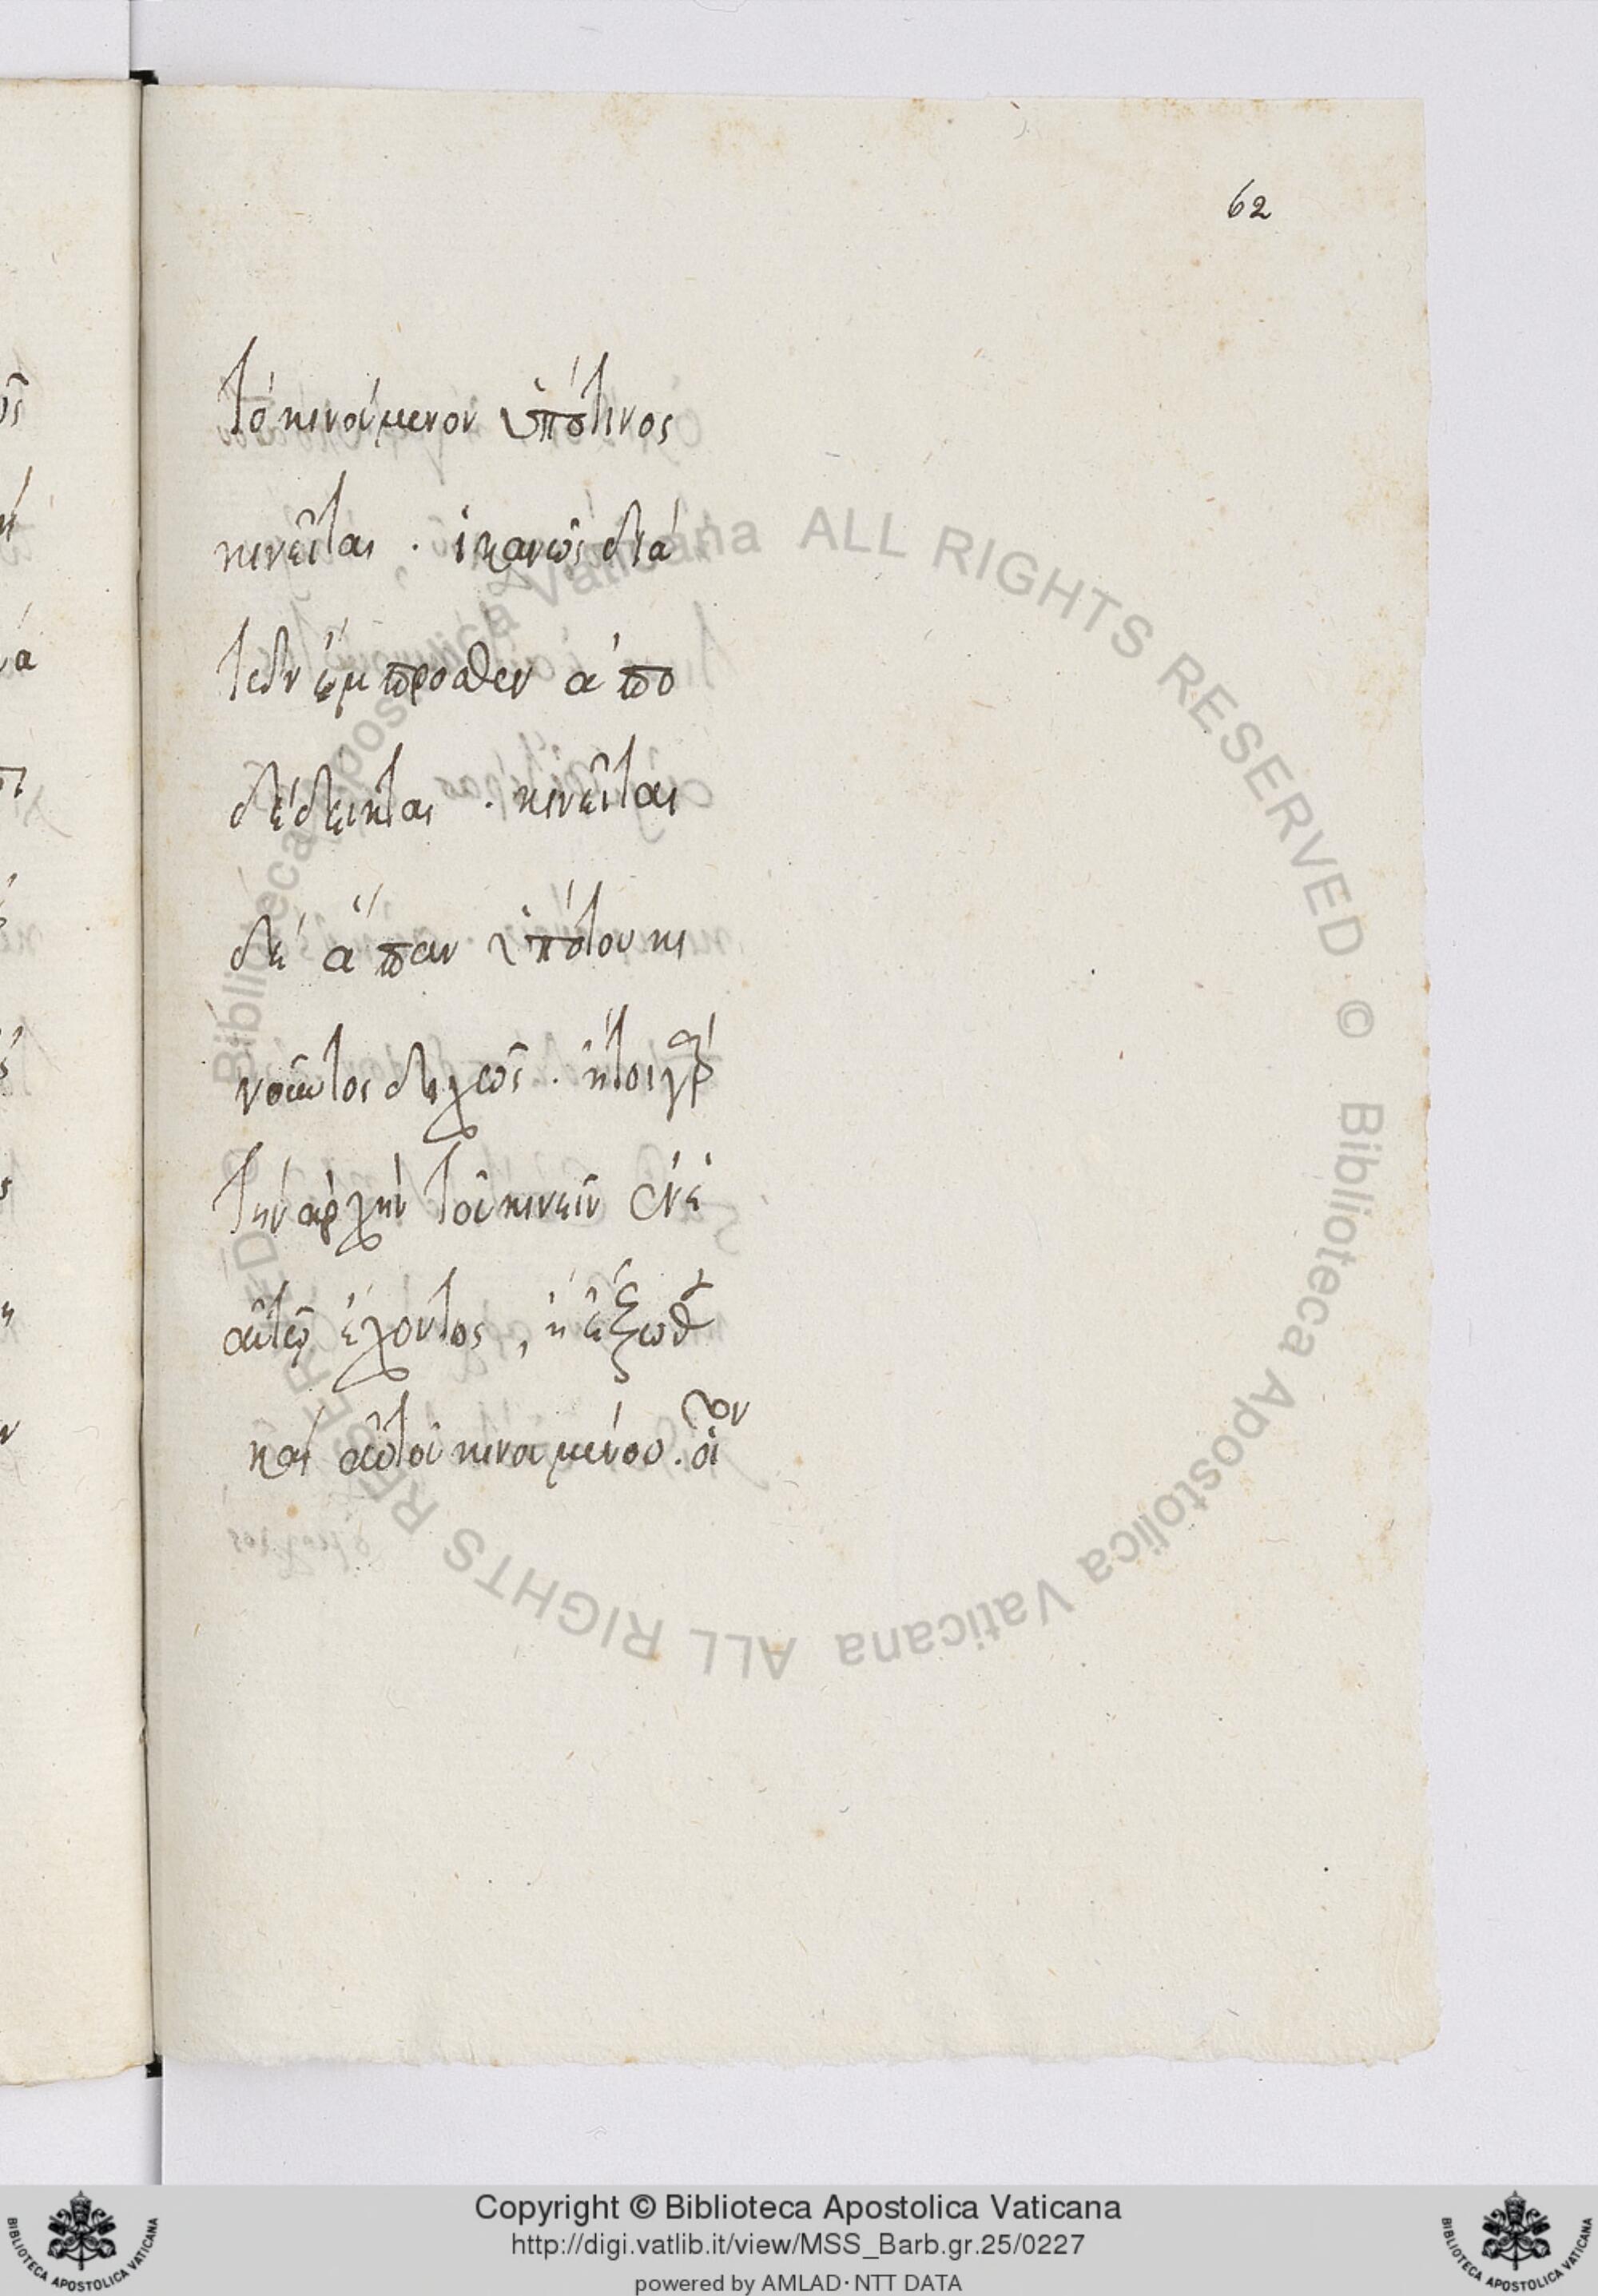 62
τὸ κινούμενον ὑπό τινος
κινεῖται . ἱκανῶς διὰ
τῶν ἔμπροσθεν ἀπο
δέδεικται . κινεῖται
δὲ ἅπαν ὑπὸ τοῦ κι
νοῦντος διχῶς . ἤτοι γὰρ
τὴν ἀρχὴν τοῦ κινεῖν ἐν ἑ
αυτῷ ἔχοντος , ἢ ἔξωθεν
καὶ αὐτοῦ κινουμένου .
Biblioteca Apostolica Vaticana ALL RIGHTS RESERVED © Biblioteca Apostolica Vaticana ALL RIGHTS RESERVED ©
Copyright © Biblioteca Apostolica Vaticana
http://digi.vatlib.it/view/MSS_Barb.gr.25/0227
powered by AMLAD·NTT DATA
BIBLIOTECA APOSTOLICA VATICANA
BIBLIOTECA APOSTOLICA VATICANA